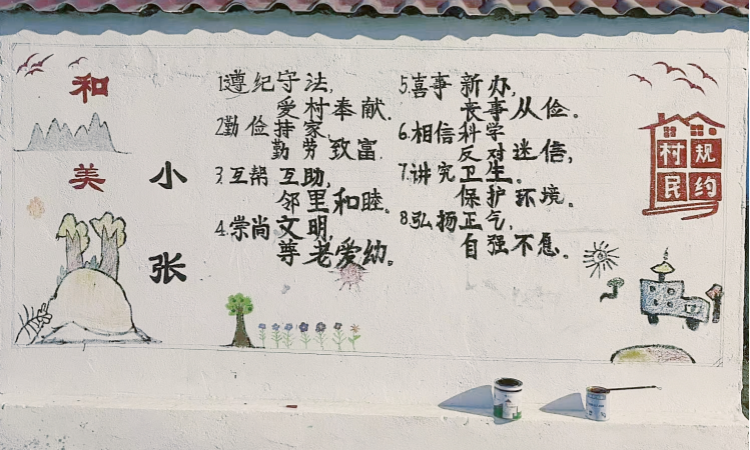 和美
小张
1.遵纪守法,
爱村奉献.
2.勤俭持家,
勤劳致富.
3.互帮互助,
邻里和睦。
4.崇尚文明,
尊老爱幼。
5.喜事新办,
丧事从俭。
6.相信科学
反对迷信,
7.讲究卫生。
保护环境。
8.弘扬正气,
自强不息。
村规
民约